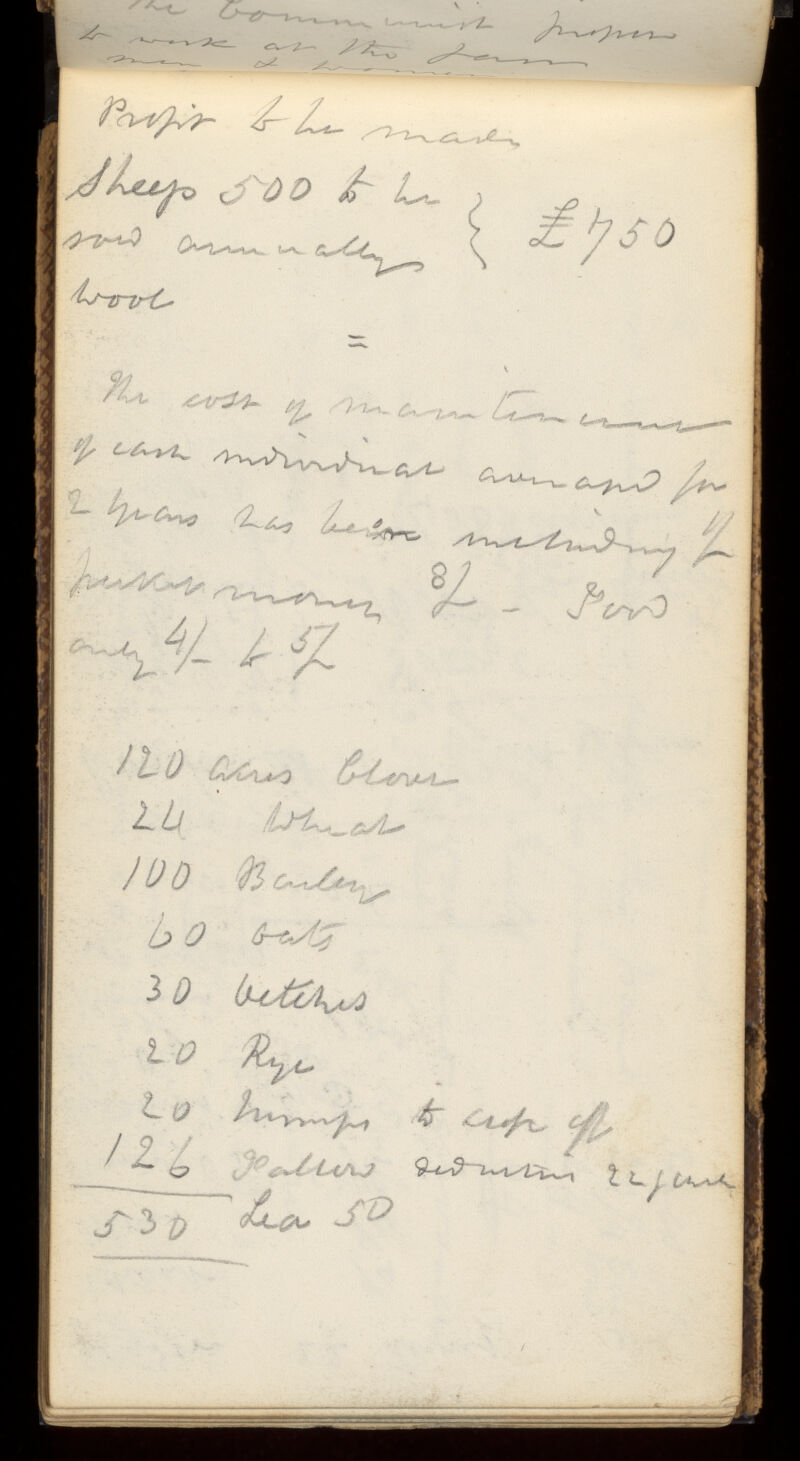 the Communist propose
to work at the same
men & women
Profit to be made
Sheep 500 to be } £750
sold annually
wool
=
The cost of maintenance
of each individual averaged for
2 years has been including of
pocket money 8/- Food
only 4/- to 5/-
120 acres Clover
24 Wheat
100 Barley
60 oats
30 vetches
20 Rye
20 turnips to crop off
126 Fallow
530 Lea 50